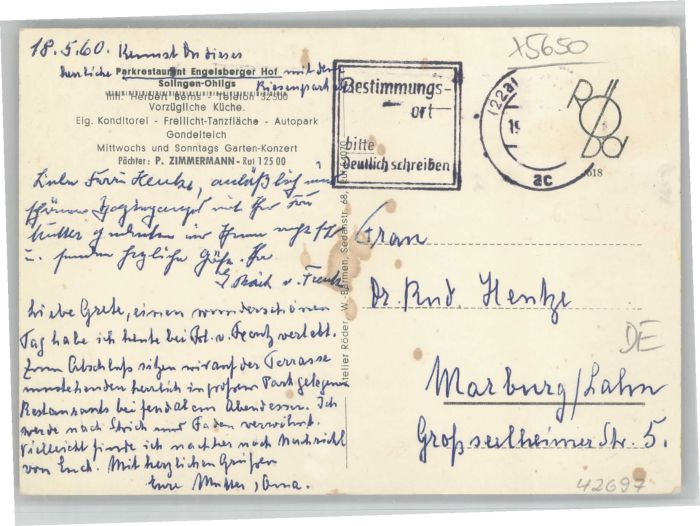 18.5.60. Kennst Du dieses
herrliche Parkrestaurant Engelsberger Hof mit dem
Solingen-Ohligs Riesenpark
Inh. Herbert Berns - Telefon 32500
Vorzügliche Küche.
Eig. Konditorei - Freilicht-Tanzfläche - Autopark
Gondelteich
Mittwochs und Sonntags Garten-Konzert
Pächter: P. ZIMMERMANN - Ruf 125 00
Liebe Frau Hentze, anläßlich
schönen mit Ihrer Frau
Mutter gedenken wir Ihrer
u. senden herzliche Grüße. Ihr
v. 
Liebe Grete, einen wunderschönen
Tag habe ich heute bei v. verlebt.
Zum Abschluß sitzen wir auf der Terrasse
umstehenden herrlich in großem Park gelegenen
Restaurants bei feudalem Abendessen. Ich
werde nach Strich und Faden verwöhnt.
Vielleicht finde ich nachher noch Nachricht
von Euch. Mit herzlichen Grüßen
Eure Mutter, Oma.
Atelier Röder, W.-Barmen, Sedanstr. 68
Bestimmungs-
ort
bitte
deutlich schreiben
(22a)
ac
x5650
Rö
Da
618
Frau
Dr. Rud. Hentze
Marburg/Lahn
Großseelheimer Str. 5.
DE
42697